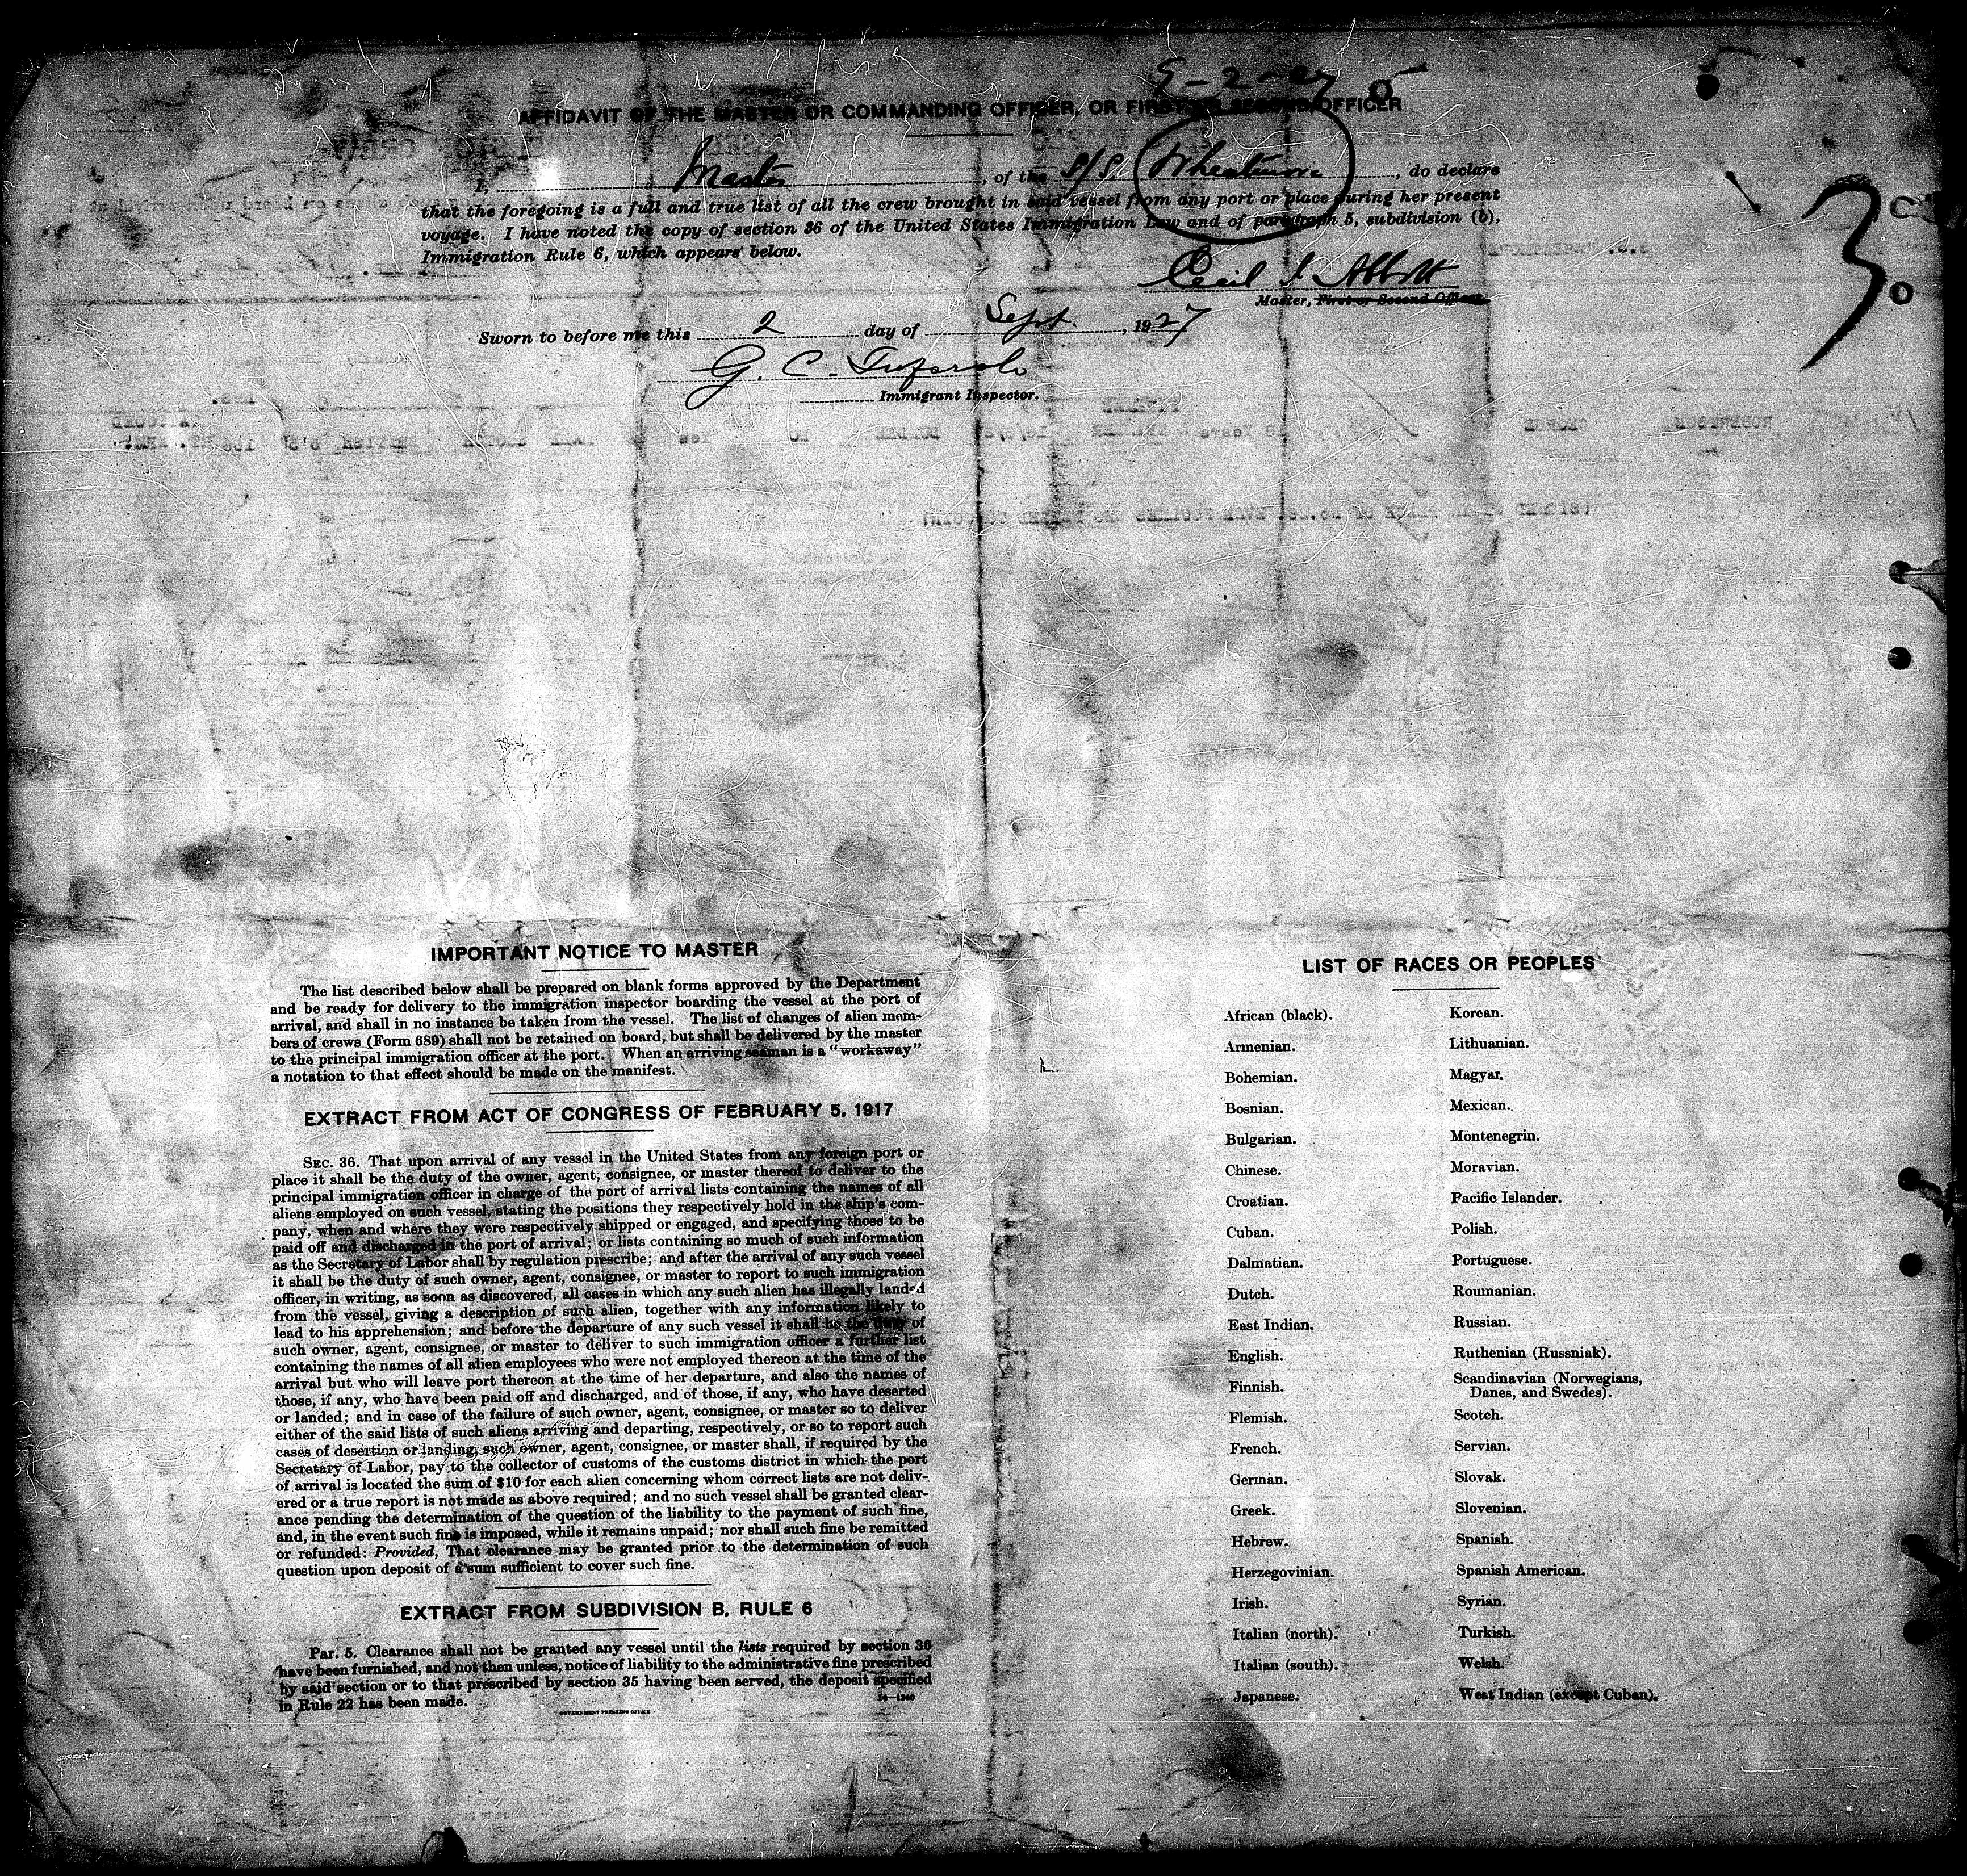 9-2-27
AFFIDAVIT OF THE MASTER OR COMMANDING OFFICER, OR FIRST OR SECOND OFFICER
I, Master, of the S/S. Wheatmore, do declare
that the foregoing is a full and true list of all the crew brought in said vessel from any port or place during her present
voyage. I have noted the copy of section 36 of the United States Immigration Law and of paragraph 5, subdivision (b),
Immigration Rule 6, which appears below.
Cecil Abbott
Master, First or Second Officer.
Sworn to before me this 2 day of Sept., 1927
G. C.
Immigrant Inspector.
IMPORTANT NOTICE TO MASTER
The list described below shall be prepared on blank forms approved by the Department
and be ready for delivery to the immigration inspector boarding the vessel at the port of
arrival, and shall in no instance be taken from the vessel. The list of changes of alien mem-
bers of crews (Form 689) shall not be retained on board, but shall be delivered by the master
to the principal immigration officer at the port. When an arriving seaman is a "workaway"
a notation to that effect should be made on the manifest.
EXTRACT FROM ACT OF CONGRESS OF FEBRUARY 5, 1917
SEC. 36. That upon arrival of any vessel in the United States from any foreign port or
place it shall be the duty of the owner, agent, consignee, or master thereof to deliver to the
principal immigration officer in charge of the port of arrival lists containing the names of all
aliens employed on such vessel, stating the positions they respectively hold in the ship's com-
pany, when and where they were respectively shipped or engaged, and specifying those to be
paid off and discharged in the port of arrival; or lists containing so much of such information
as the Secretary of Labor shall by regulation prescribe; and after the arrival of any such vessel
it shall be the duty of such owner, agent, consignee, or master to report to such immigration
officer, in writing, as soon as discovered, all cases in which any such alien has illegally landed
from the vessel, giving a description of such alien, together with any information likely to
lead to his apprehension; and before the departure of any such vessel it shall be the duty of
such owner, agent, consignee, or master to deliver to such immigration officer a further list
containing the names of all alien employees who were not employed thereon at the time of the
arrival but who will leave port thereon at the time of her departure, and also the names of
those, if any, who have been paid off and discharged, and of those, if any, who have deserted
or landed; and in case of the failure of such owner, agent, consignee, or master so to deliver
either of the said lists of such aliens arriving and departing, respectively, or so to report such
cases of desertion or landing, such owner, agent, consignee, or master shall, if required by the
Secretary of Labor, pay to the collector of customs of the customs district in which the port
of arrival is located the sum of $10 for each alien concerning whom correct lists are not deliv-
ered or a true report is not made as above required; and no such vessel shall be granted clear-
ance pending the determination of the question of the liability to the payment of such fine,
and, in the event such fine is imposed, while it remains unpaid; nor shall such fine be remitted
or refunded: Provided, That clearance may be granted prior to the determination of such
question upon deposit of a sum sufficient to cover such fine.
EXTRACT FROM SUBDIVISION B, RULE 6
Par. 5. Clearance shall not be granted any vessel until the lists required by section 36
have been furnished, and not then unless, notice of liability to the administrative fine prescribed
by said section or to that prescribed by section 35 having been served, the deposit specified
in Rule 22 has been made.
GOVERNMENT PRINTING OFFICE
LIST OF RACES OR PEOPLES
African (black).
Armenian.
Bohemian.
Bosnian.
Bulgarian.
Chinese.
Croatian.
Cuban.
Dalmatian.
Dutch.
East Indian.
English.
Finnish.
Flemish.
French.
German.
Greek.
Hebrew.
Herzegovinian.
Irish.
Italian (north).
Italian (south).
Japanese.
Korean.
Lithuanian.
Magyar.
Mexican.
Montenegrin.
Moravian.
Pacific Islander.
Polish.
Portuguese.
Roumanian.
Russian.
Ruthenian (Russniak).
Scandinavian (Norwegians,
Danes, and Swedes).
Scotch.
Servian.
Slovak.
Slovenian.
Spanish.
Spanish American.
Syrian.
Turkish.
Welsh.
West Indian (except Cuban).